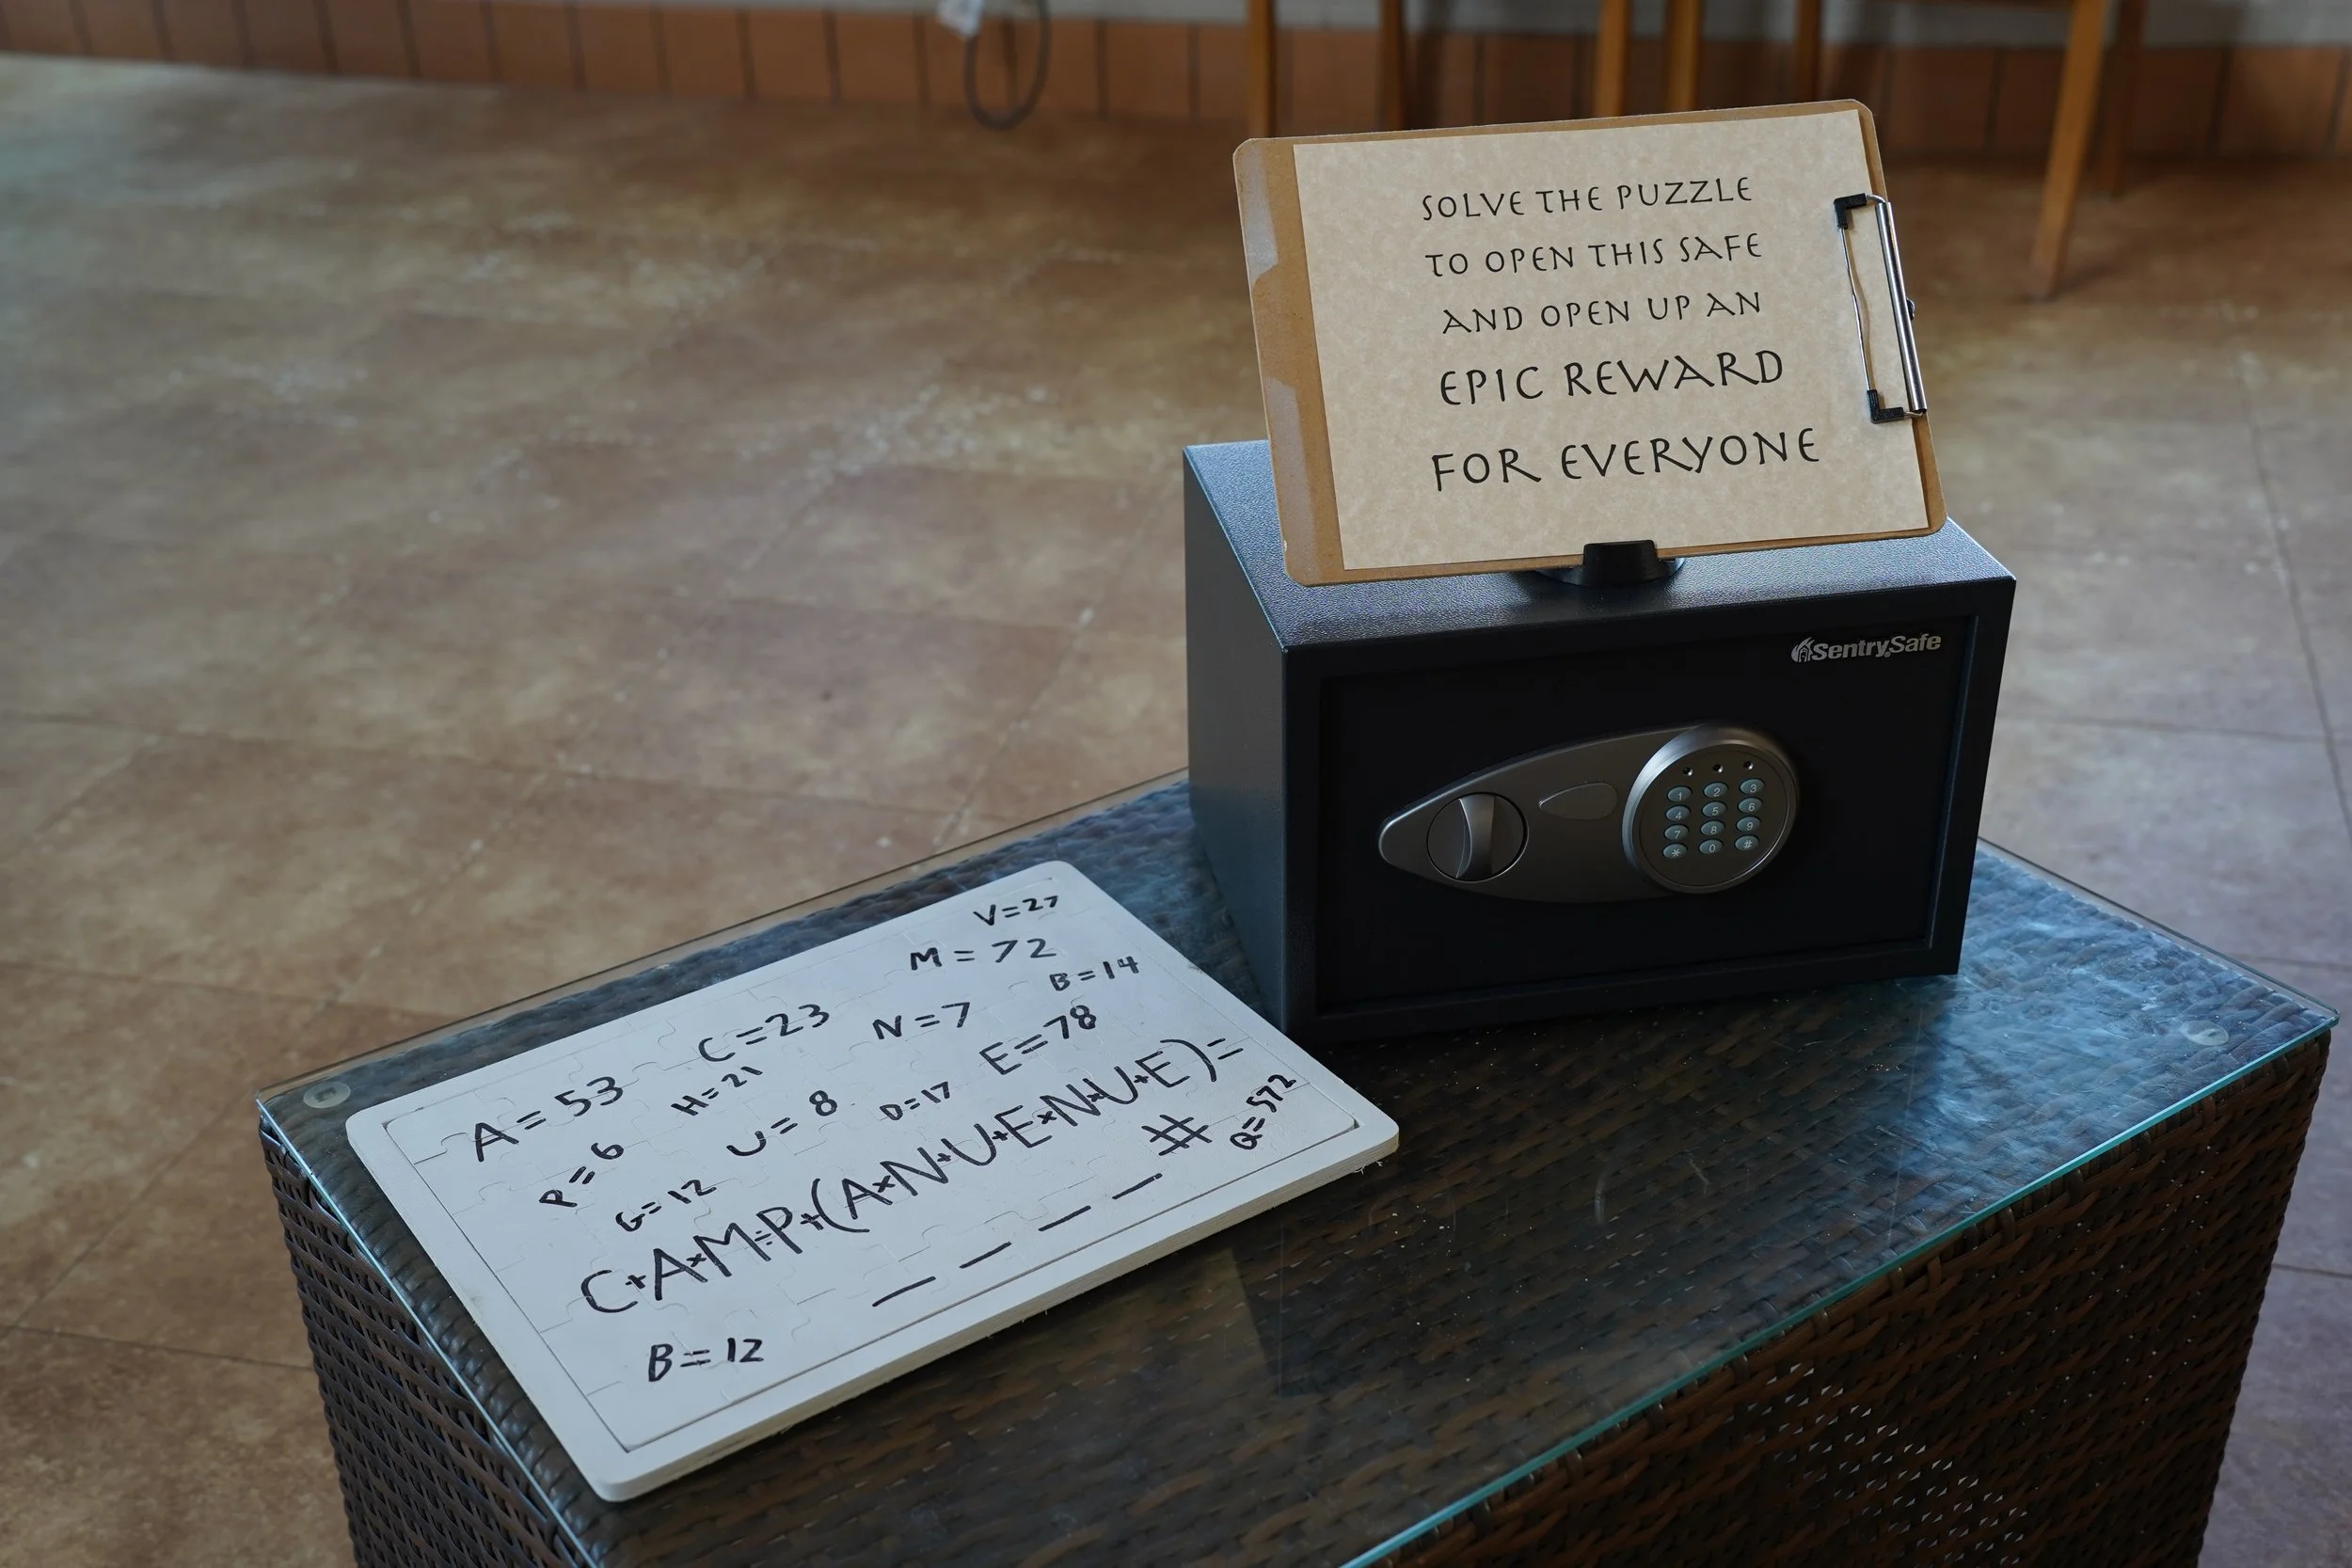 SOLVE THE PUZZLE
TO OPEN THIS SAFE
AND OPEN UP AN
EPIC REWARD
FOR EVERYONE
SentrySafe
1 2 3
4 5 6
7 8 9
* 0 #
V=27
M=72
B=14
C=23
N=7
E=78
A=53
H=21
U=8
D=17
P=6
G=12
C+A×M÷P+(A×N+U+E×N×U+E)=
_ _ _ _ #
Q=572
B=12